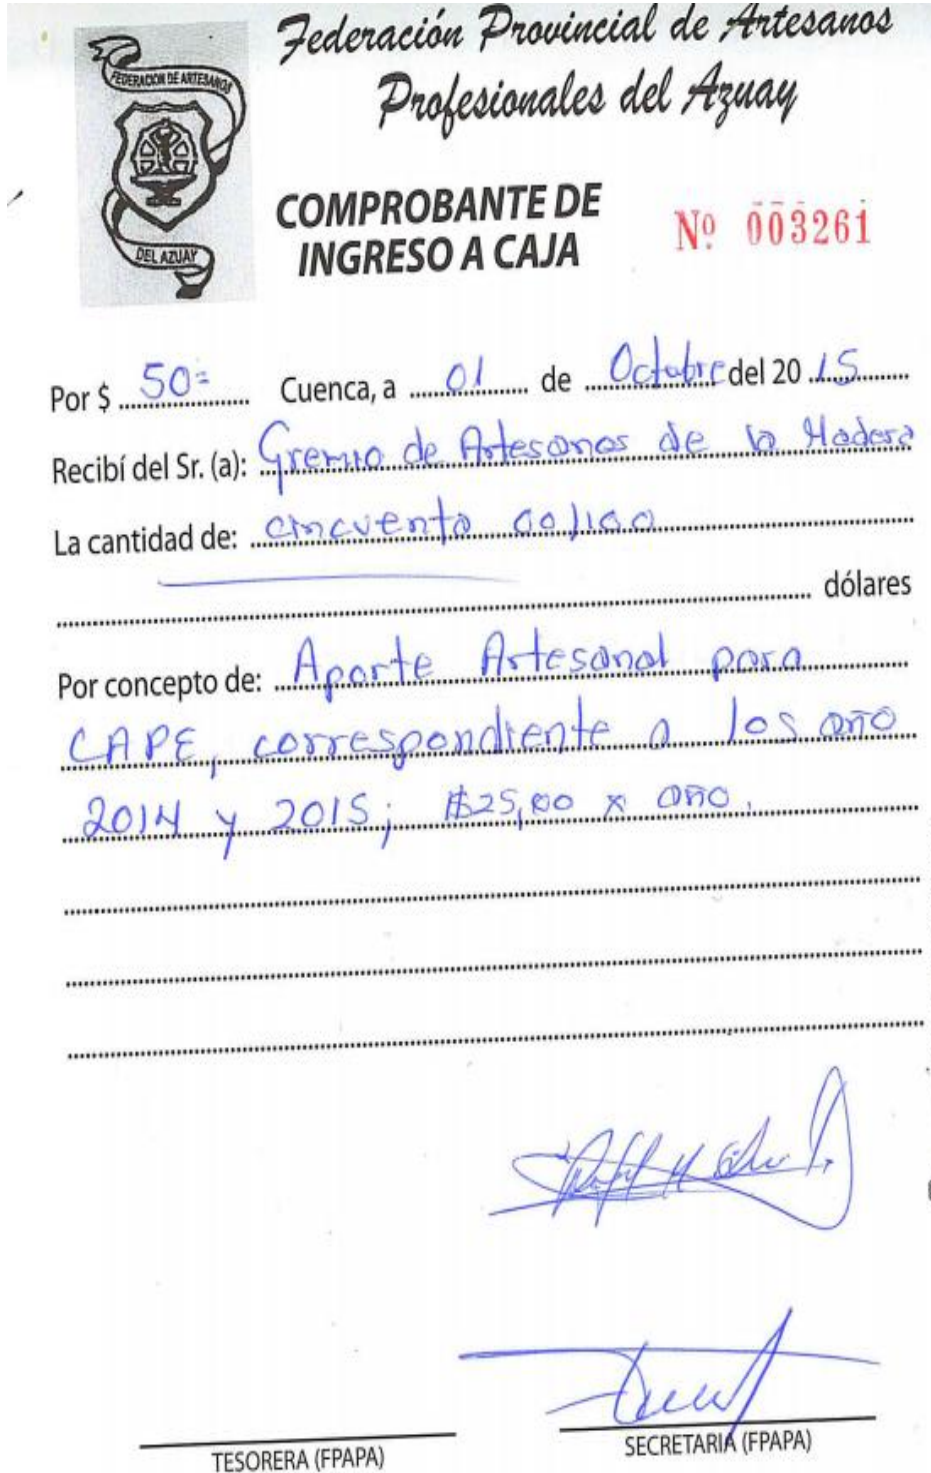 Federación Provincial de Artesanos
Profesionales del Azuay
FEDERACION DE ARTESANOS
DEL AZUAY
COMPROBANTE DE
INGRESO A CAJA
Nº 003261
Por $ 50= Cuenca, a 01 de Octubre del 2015
Recibí del Sr. (a): Gremio de Artesanos de la Madera
La cantidad de: cincuenta 00/100
dólares
Por concepto de: Aporte Artesanal para
CAPE, correspondiente a los año
2014 y 2015; $25,00 x año.
TESORERA (FPAPA)
SECRETARIA (FPAPA)